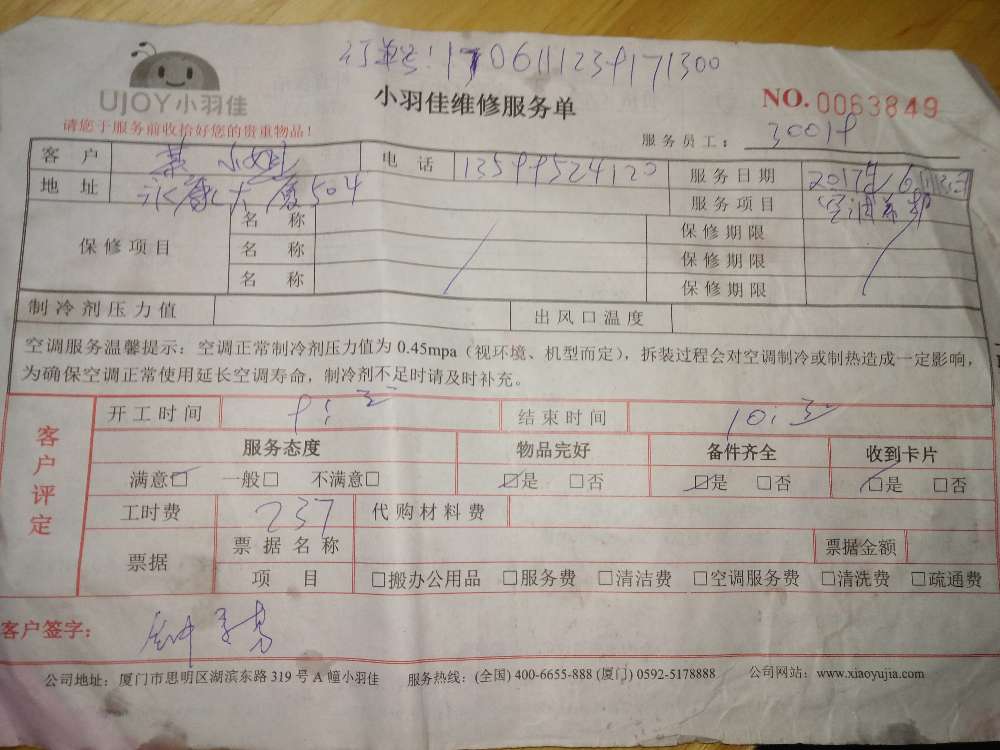 订单号：1706111239171300
UJOY小羽佳
小羽佳维修服务单
NO.0063849
请您于服务前收拾好您的贵重物品！
服务员工：30019
客户 小姐 电话 13599524120 服务日期 2017年6
地址 永康大厦504 服务项目 空调
保修项目 名称 保修期限
名称 保修期限
名称 保修期限
制冷剂压力值 出风口温度
空调服务温馨提示：空调正常制冷剂压力值为 0.45mpa（视环境、机型而定），拆装过程会对空调制冷或制热造成一定影响，
为确保空调正常使用延长空调寿命，制冷剂不足时请及时补充。
客户评定
开工时间 9：30 结束时间 10：30
服务态度 物品完好 备件齐全 收到卡片
满意□ 一般□ 不满意□ □是 □否 □是 □否 □是 □否
工时费 237 代购材料费
票据 票据名称 票据金额
项目 □搬办公用品 □服务费 □清洁费 □空调服务费 □清洗费 □疏通费
客户签字： 钟
公司地址：厦门市思明区湖滨东路 319 号 A 幢小羽佳 服务热线：(全国) 400-6655-888 (厦门) 0592-5178888 公司网站：www.xiaoyujia.com